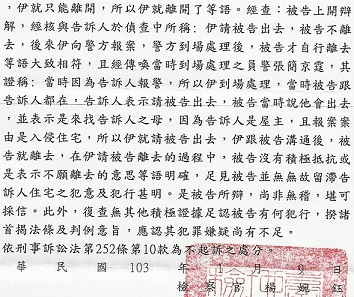 ,伊就只能離開,所以伊就離開了等語。經查:被告上開辯
解,經核與告訴人於偵查中所稱:伊請被告出去,被告不離
去,後來伊向警方報案,警方到場處理後,被告才自行離去
等語大致相符,且經傳喚當時到場處理之員警張簡京霆,其
證稱:當時因為告訴人報警,所以伊到場處理,當時被告跟
告訴人都在,告訴人表示請被告出去,被告當時說他會出去
,並表示是來找告訴人之母,因為告訴人是屋主,且報案案
由是入侵住宅,所以伊就請被告出去,伊跟被告溝通後,被
告就離去,在伊請被告離去的過程中,被告沒有積極抵抗或
是表示不願離去的意思等語明確,足見被告並無無故留滯告
訴人住宅之犯意及犯行甚明。是被告所辯,尚非無稽,堪可
採信。此外,復查無其他積極證據足認被告有何犯行,揆諸
首揭法條及判例意旨,應認其犯罪嫌疑尚有不足。
依刑事訴訟法第252條第10款為不起訴之處分。
華 民 國 103 年 1 月 9 日
檢 察 官 楊 婉 鈺